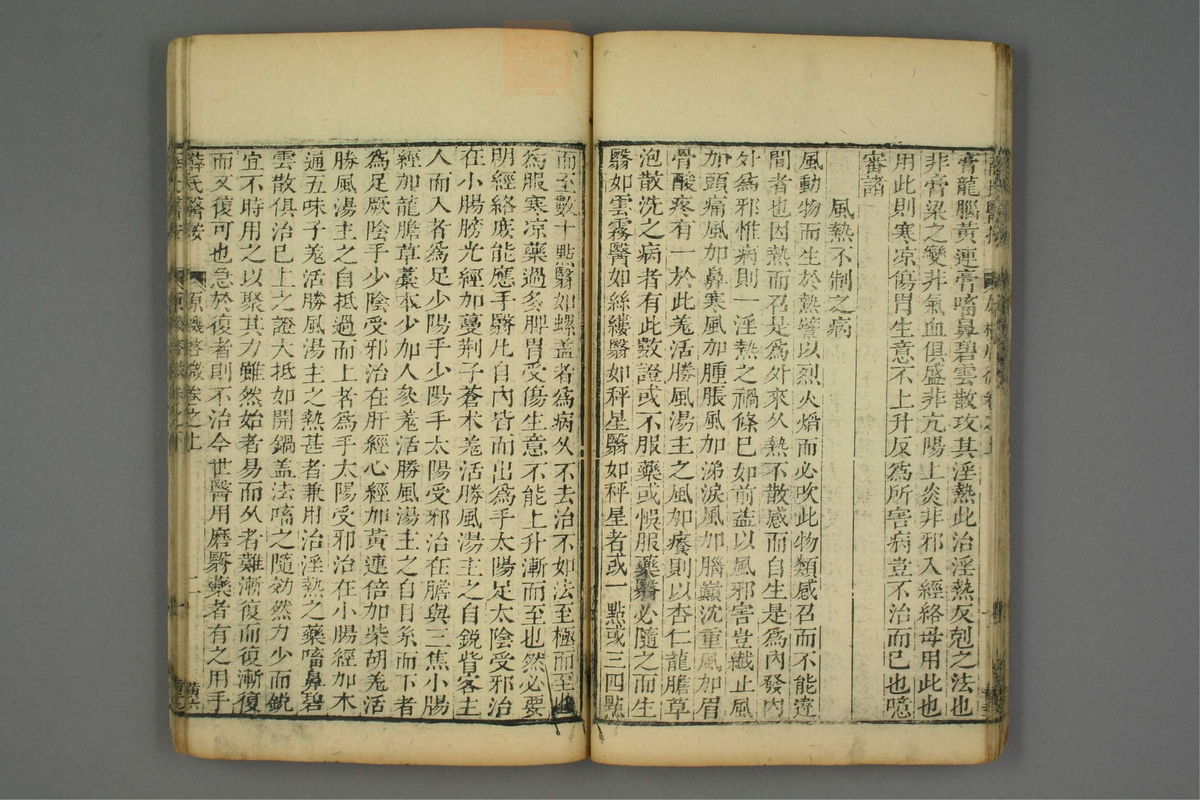 膏龍腦黃連膏㗜鼻碧雲散攻其淫熱此治淫熱反剋之法也
非膏粱之變非氣血俱盛非亢陽上炎非邪入經絡毋用此也
用此則寒凉傷胃生意不上升反爲所害病豈不治而已也噫
審諸
風熱不制之病
風動物而生於熱譬以烈火熖而必吹此物類感召而不能違
間者也因熱而召是爲外來久熱不散感而自生是爲內發內
外爲邪惟病則一淫熱之禍條已如前益以風邪害豈纖止風
加頭痛風加鼻寒風加腫脹風加涕淚風加腦巔沈重風加眉
骨酸疼有一於此羗活勝風湯主之風加癢則以杏仁龍膽草
泡散洗之病者有此數證或不服藥或悞服藥翳必隨之而生
翳如雲霧翳如絲縷翳如秤星翳如秤星者或一點或三四點
而至數十點翳如螺蓋者爲病久不去治不如法至極而至也
爲服寒凉藥過多脾胃受傷生意不能上升漸而至也然必要
明經絡庻能應手翳凡自內眥而出爲手太陽足太陰受邪治
在小腸膀光經加蔓荆子蒼术羗活勝風湯主之自銳眥客主
人而入者爲足少陽手少陽手太陽受邪治在膽與三焦小腸
經加龍膽草藁本少加人參羗活勝風湯主之自目系而下者
爲足厥陰手少陰受邪治在肝經心經加黃連倍加柴胡羗活
勝風湯主之自抵過而上者爲手太陽受邪治在小腸經加木
通五味子羗活勝風湯主之熱甚者兼用治淫熱之藥㗜鼻碧
雲散俱治已上之證大抵如開鍋盖法㗜之隨効然力少而銳
宜不時用之以聚其力雖然始者易而久者難漸復而復漸復
而又復可也急於復者則不治今世醫用磨翳藥者有之用手
薛氏醫按
原機啓微卷之上
二